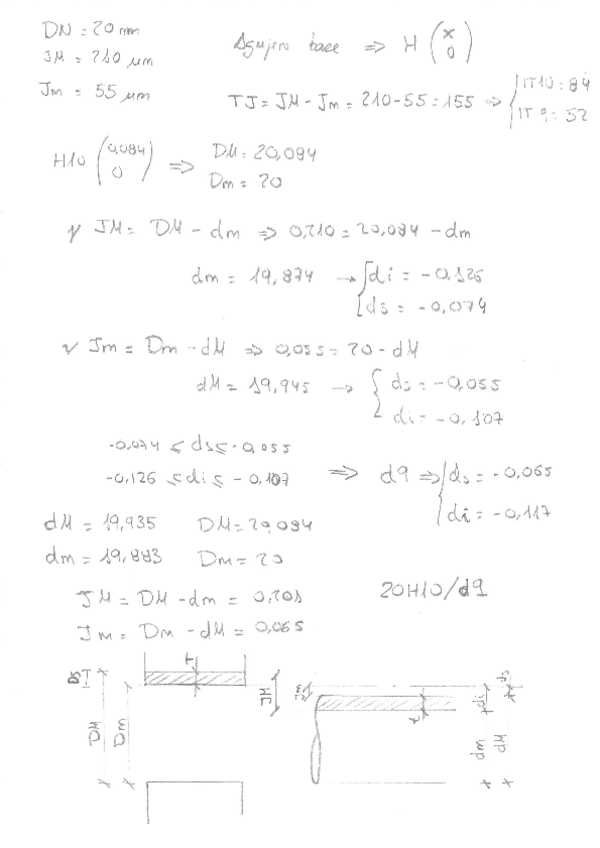 DN = 20 mm
JM = 210 µm
Jm = 55 µm
Agujero base => H (x 0)
TJ = JM - Jm = 210 - 55 = 155 => { IT10 = 84
IT 9 = 52
H10 (0,084 0) => DM = 20,084
Dm = 20
JM = DM - dm => 0,210 = 20,084 - dm
dm = 19,874 → { di = -0,126
ds = -0,074
Jm = Dm - dM => 0,055 = 20 - dM
dM = 19,945 → { ds = -0,055
di = -0,107
-0,074 ≤ ds ≤ -0,055
-0,126 ≤ di ≤ -0,107 => d9 => { ds = -0,065
di = -0,117
dM = 19,935 DM = 20,084
dm = 19,883 Dm = 20
JM = DM - dm = 0,201
Jm = Dm - dM = 0,065
20H10/d9
T
DM
Dm
JM
Jm
t
di
ds
dm
dM